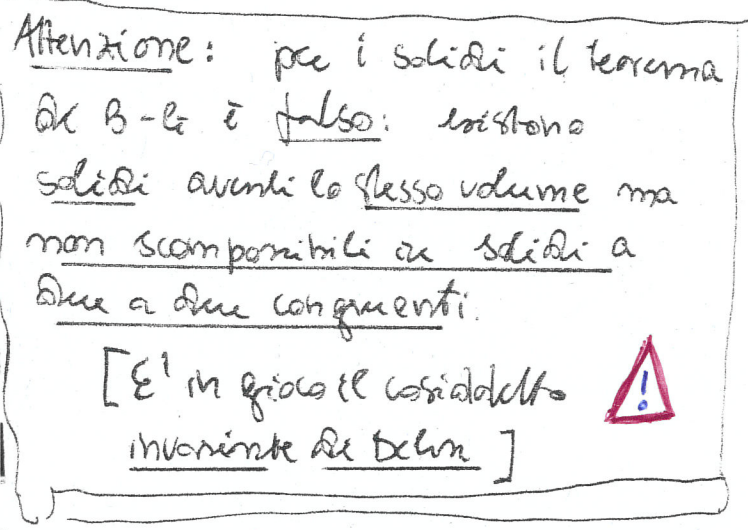 Attenzione: per i solidi il teorema
di B-G è falso: esistono
solidi aventi lo stesso volume ma
non scomponibili in solidi a
due a due congruenti.
[E' in gioco il cosiddetto
invariante di Dehn]
!